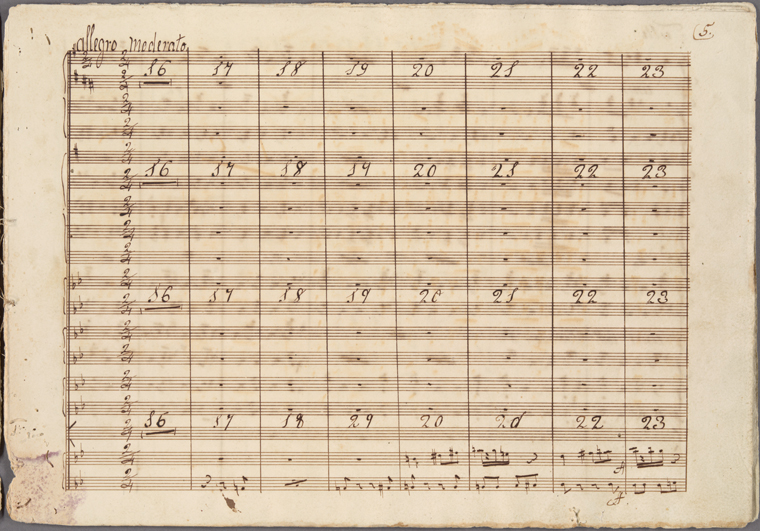 Allegro moderato
5.
16 17 18 19 20 21 22 23
16 17 18 19 20 21 22 23
16 17 18 19 20 21 22 23
16 17 18 29 20 21 22 23